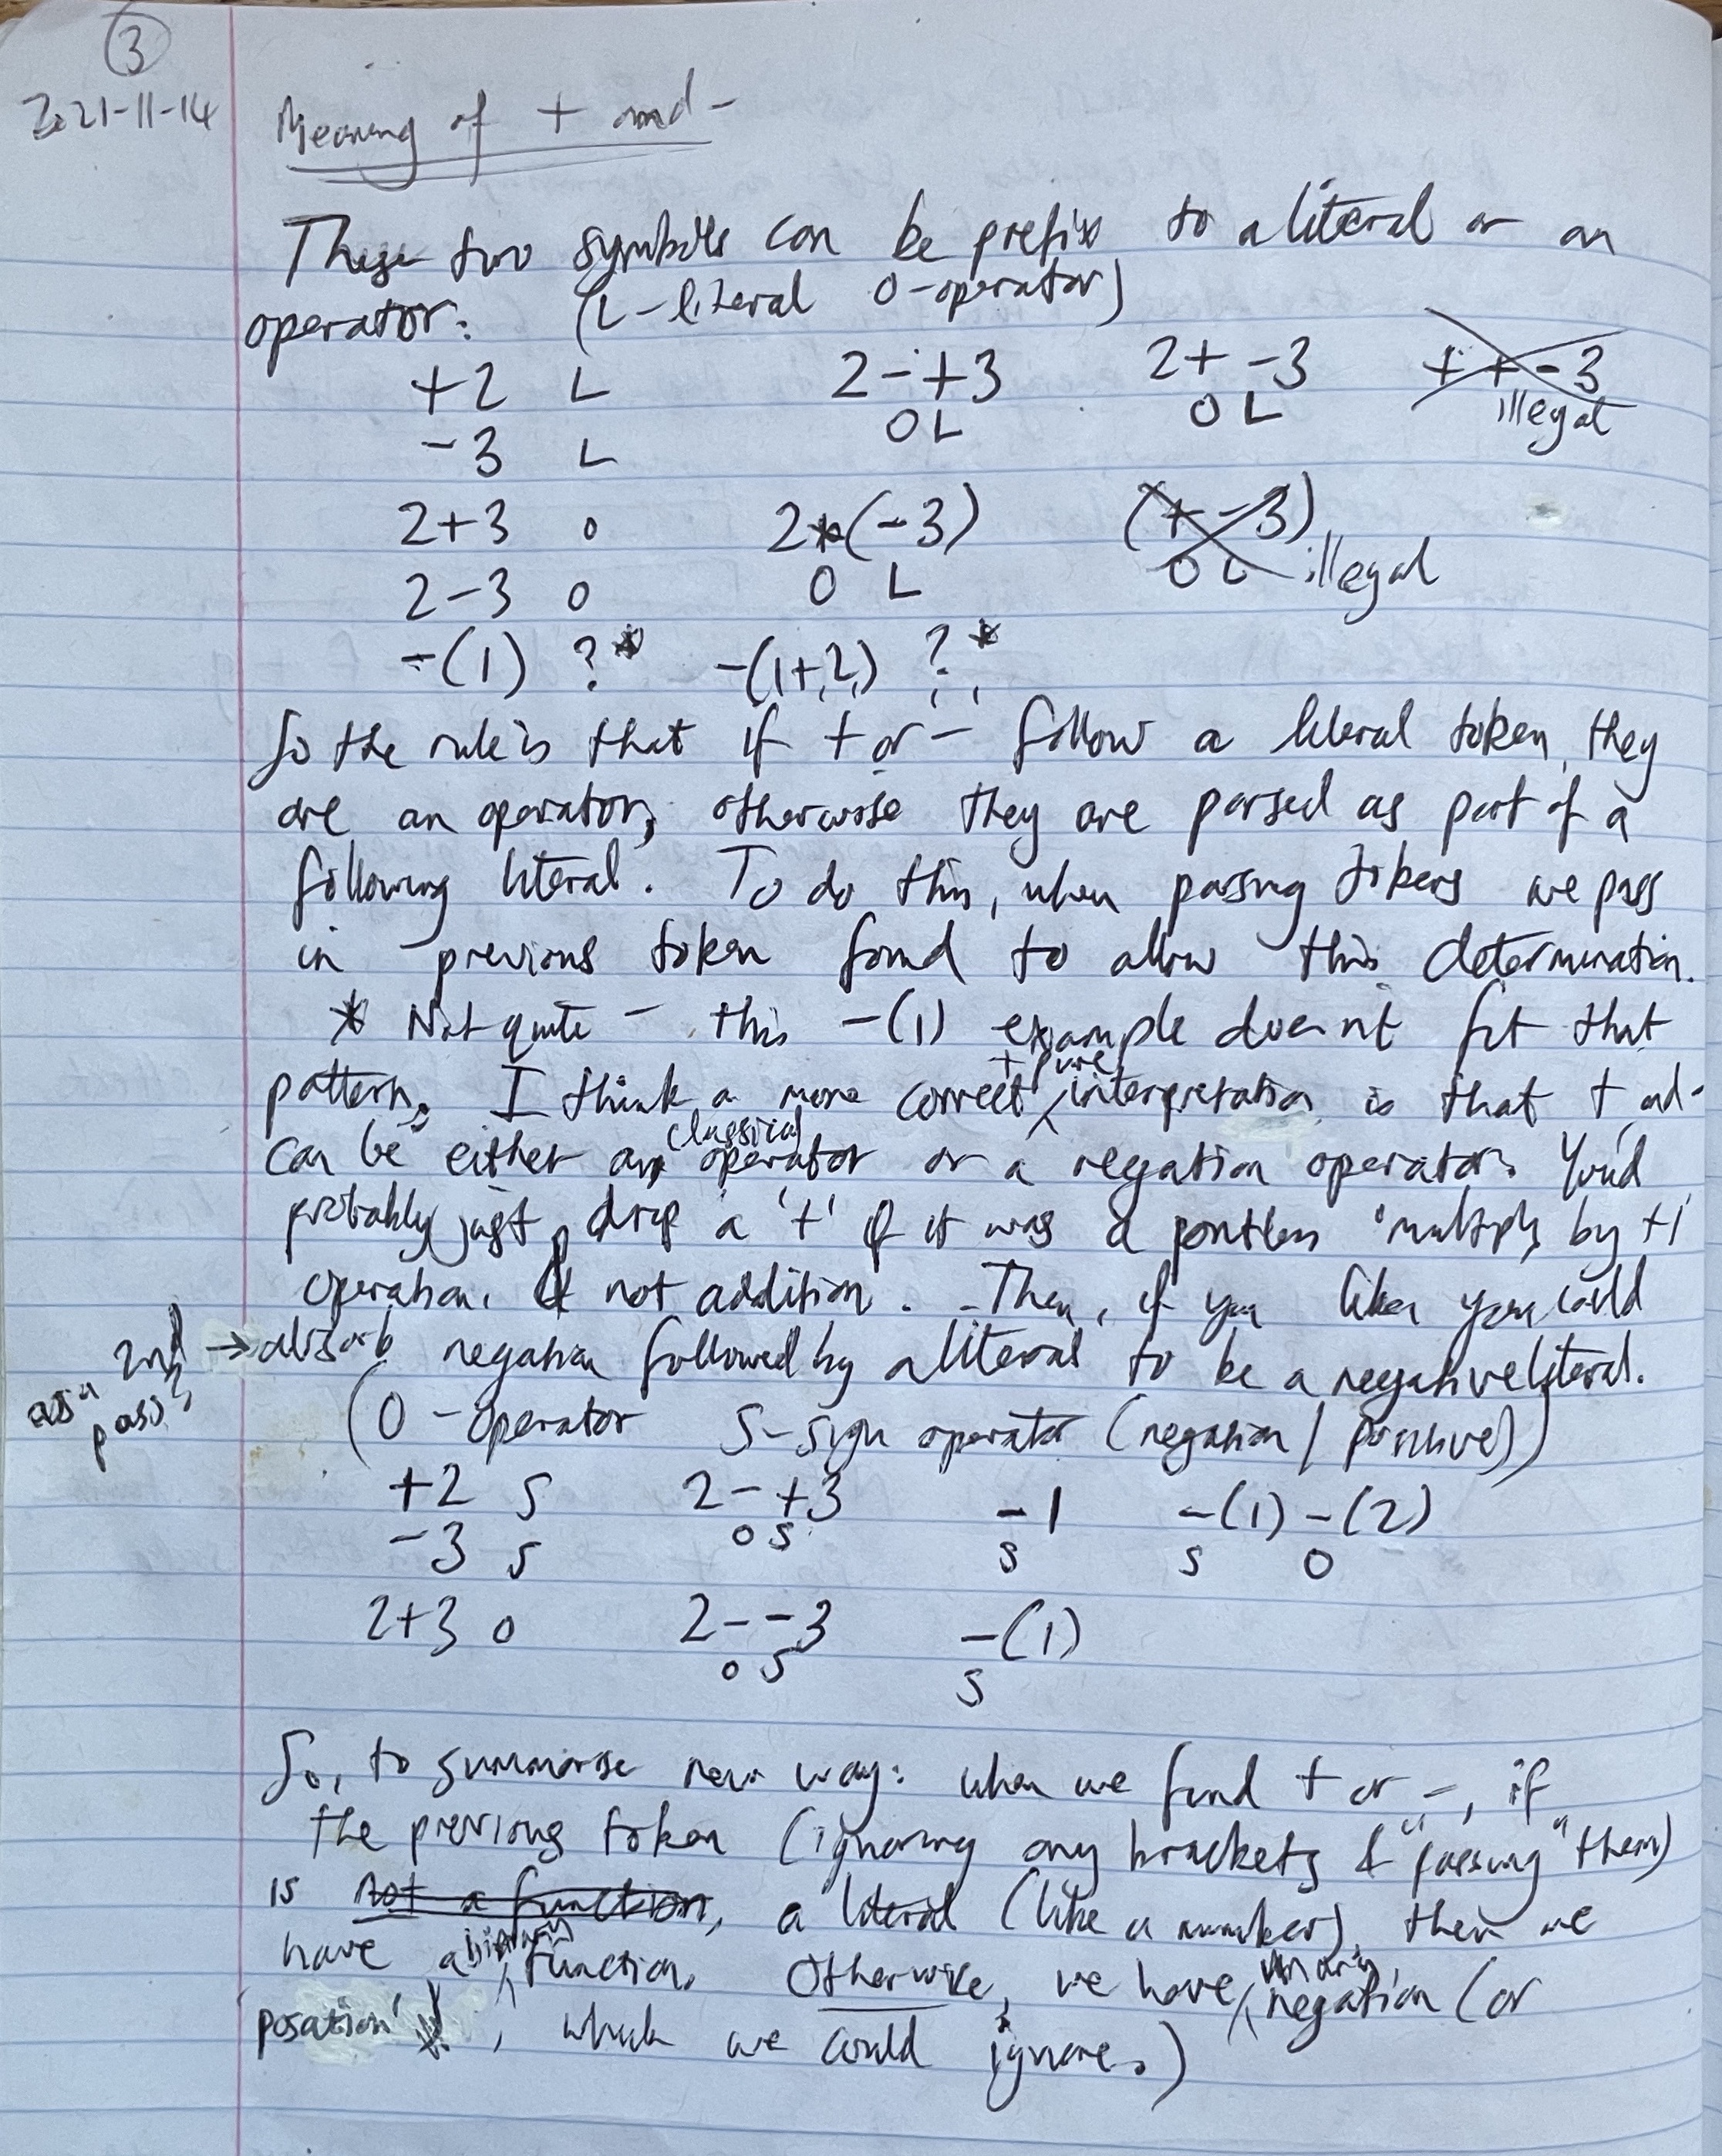 3
2021-11-14
Meaning of + and -
These two symbols can be prefix to a literal or an
operator: (L-literal O-operator)
+2 L 2-+3 2+ -3 + + -3
O L O L illegal
-3 L
2+3 O 2*(-3) (+ -3)
2-3 O O L O L illegal
-(1) ?* -(1+2) ?*
So the rule is that if + or - follow a literal token, they
are an operator, otherwise they are parsed as part of a
following literal. To do this, when parsing tokens we pass
in previous token found to allow this determination.
* Not quite - this -(1) example doesn't fit that
pattern. I think a more correct + pure interpretation is that + and -
can be either an classical operator or a negation operator. You'd
probably just drop a '+' if it was a pointless 'multiply by +1'
operation, & not addition. Then, if you like, you could
as a 2nd pass? → absorb negation followed by a literal to be a negative literal.
(O-operator S-sign operator (negation / positive))
+2 S 2-+3 -1 -(1) -(2)
O S S S O
-3 S
2+3 O 2--3 -(1)
O S S
So, to summarise new way: when we find + or -, if
the previous token (ignoring any brackets & "passing" them)
is not a function, a literal (like a number), then we
have a binary function. Otherwise, we have unary negation (or
'posation', which we could ignore.)